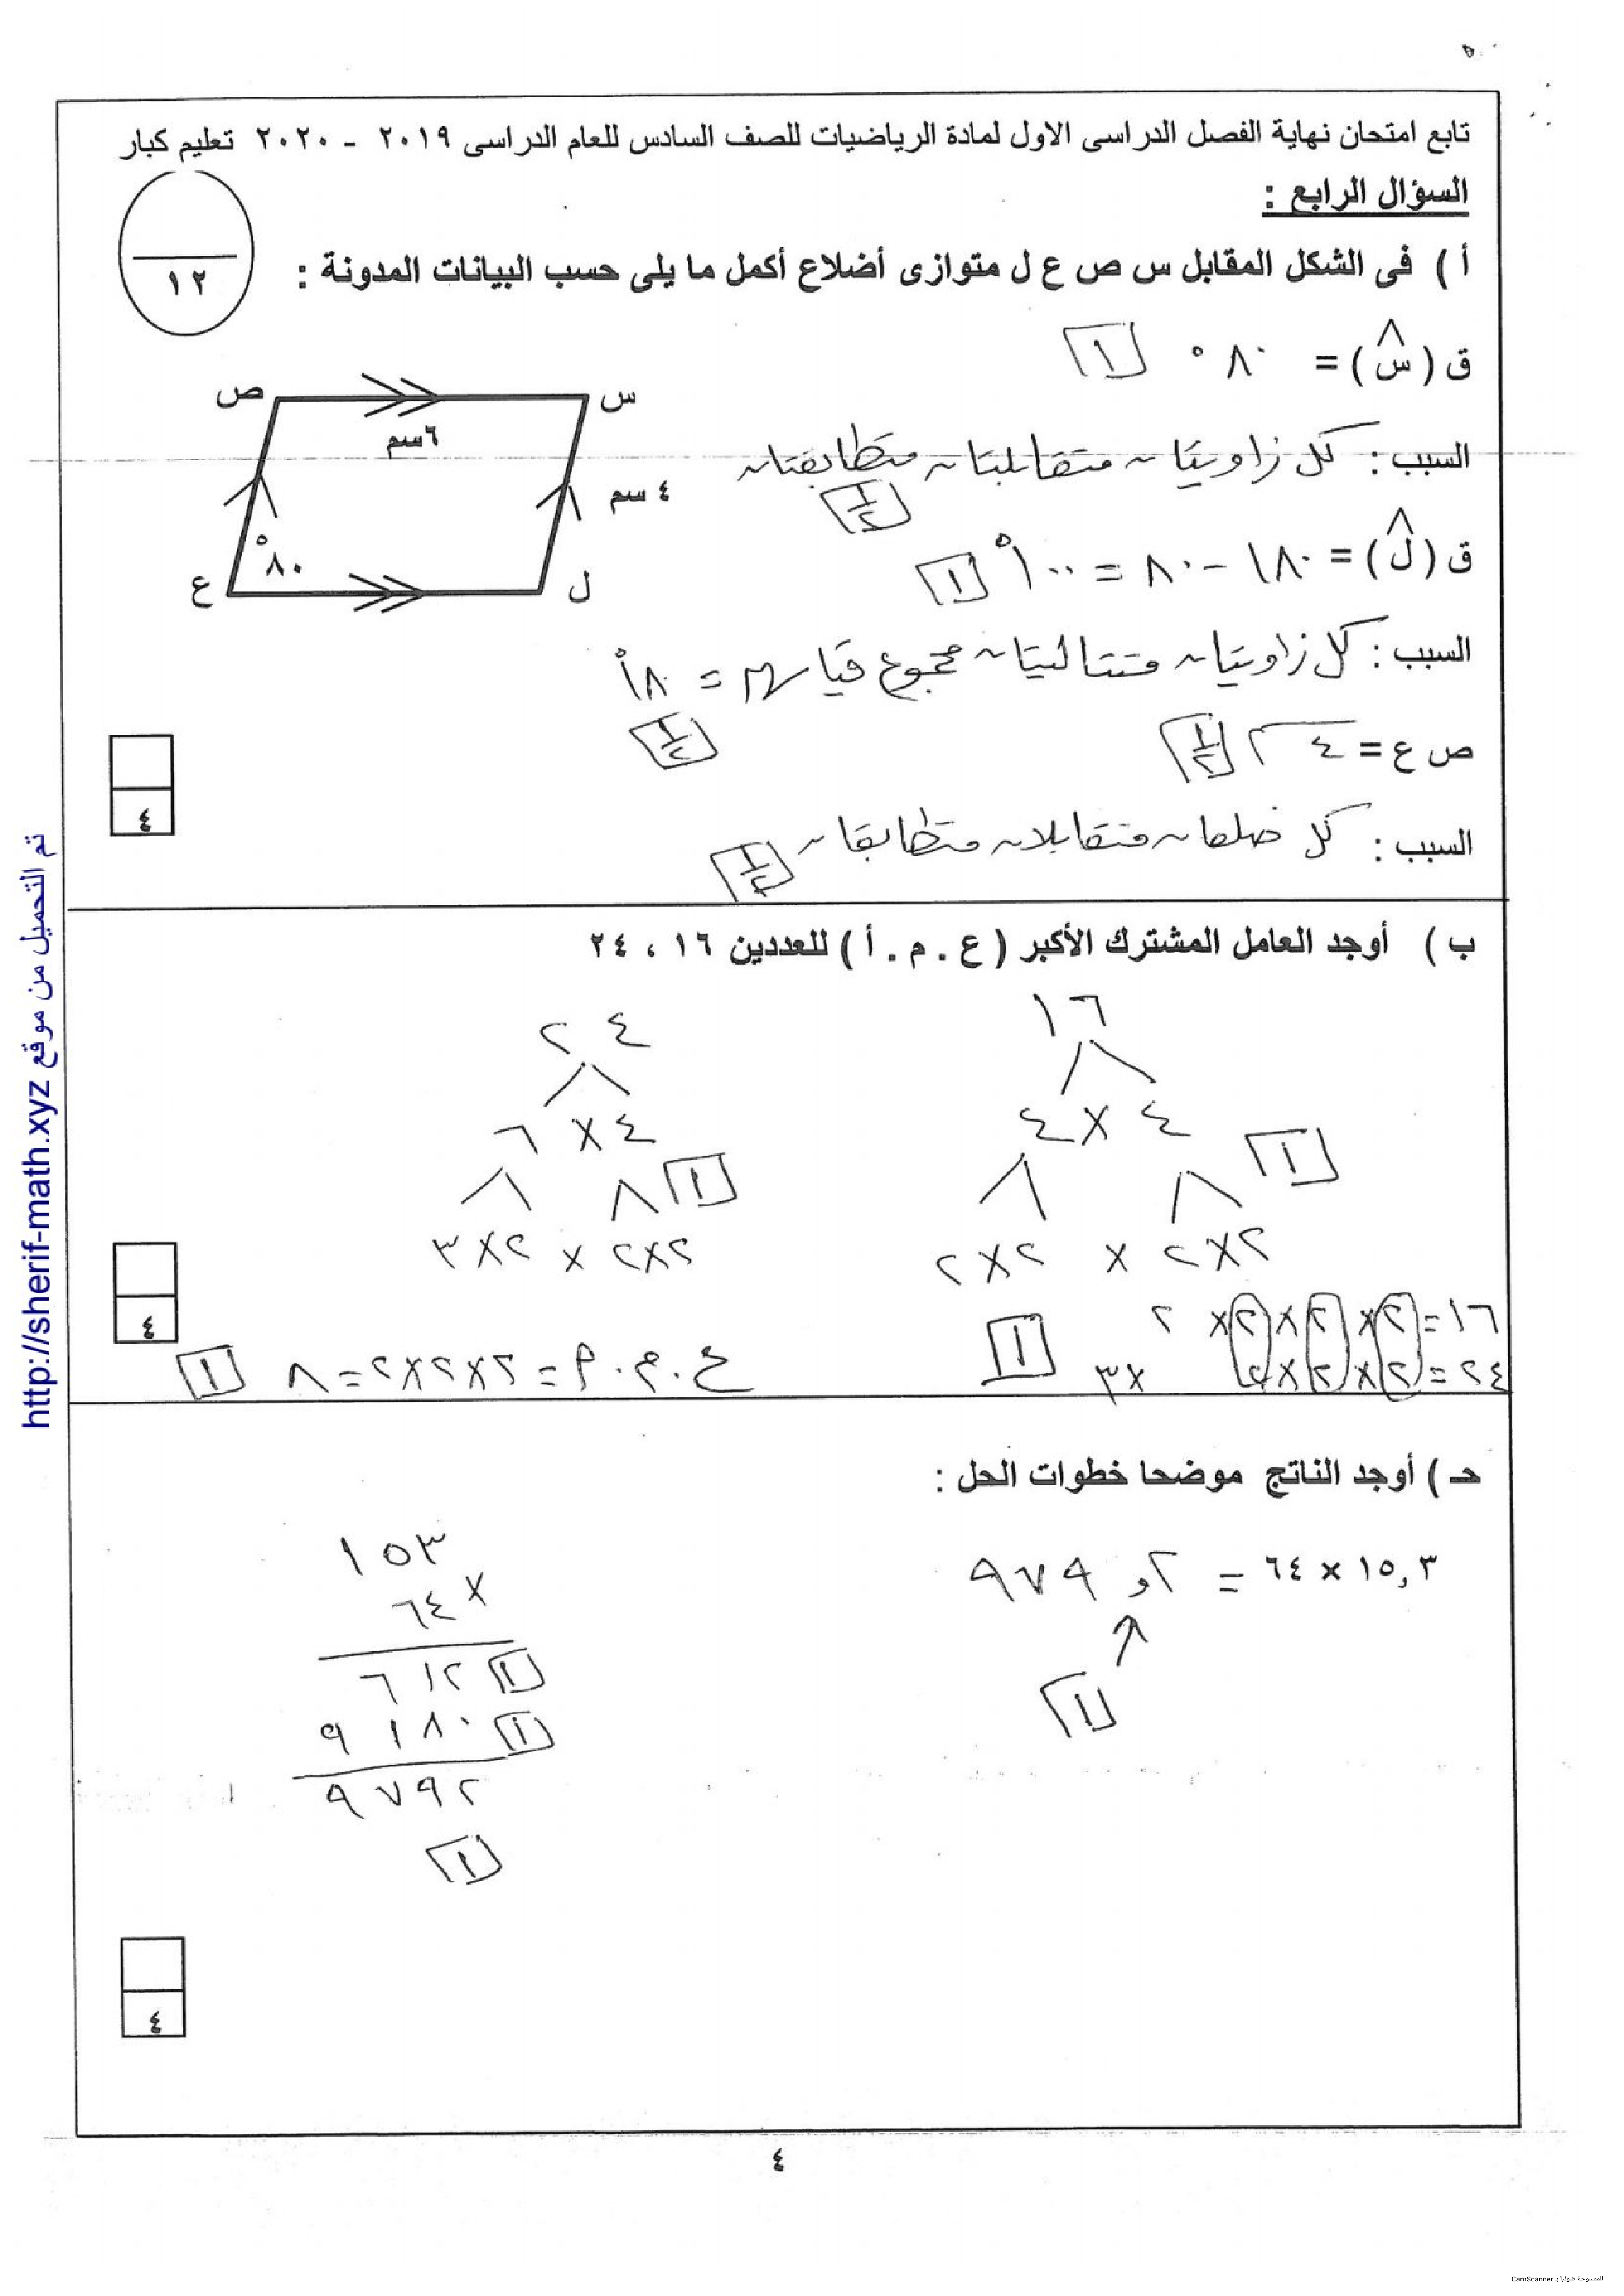 تابع امتحان نهاية الفصل الدراسى الاول لمادة الرياضيات للصف السادس للعام الدراسى ٢٠١٩ - ٢٠٢٠ تعليم كبار
السؤال الرابع :
١٢
أ ) فى الشكل المقابل س ص ع ل متوازى أضلاع أكمل ما يلى حسب البيانات المدونة :
ق ( س^ ) = ٨٠° ١
ص س
٦سم
٤ سم
٨٠°
ع ل
السبب : كل زاويتان متقابلتان متطابقتان
١/٢
ق ( ل^ ) = ١٨٠ - ٨٠ = ١٠٠° ١
السبب : كل زاويتان متتاليتان مجموع قياسهم = ١٨٠°
١/٢
ص ع = ٤ سم ١/٢
السبب : كل ضلعان متقابلان متطابقان
١/٢
٤
ب ) أوجد العامل المشترك الأكبر ( ع . م . أ ) للعددين ١٦ ، ٢٤
١٦
٤ × ٤
١
٢×٢ × ٢×٢
٢٤
٤ × ٦
١
٢×٢ × ٢×٣
١٦ = ٢ × ٢ × ٢ × ٢
٢٤ = ٢ × ٢ × ٢ × ٣
١
ع . م . أ = ٢×٢×٢ = ٨ ١
٤
حـ ) أوجد الناتج موضحا خطوات الحل :
١٥,٣ × ٦٤ = ٩٧٩,٢
١
١٥٣
٦٤ ×
٦١٢ ١
٩١٨٠ ١
٩٧٩٢
١
٤
٤
تم التحميل من موقع http://sherif-math.xyz
الممسوحة ضوئيا بـ CamScanner